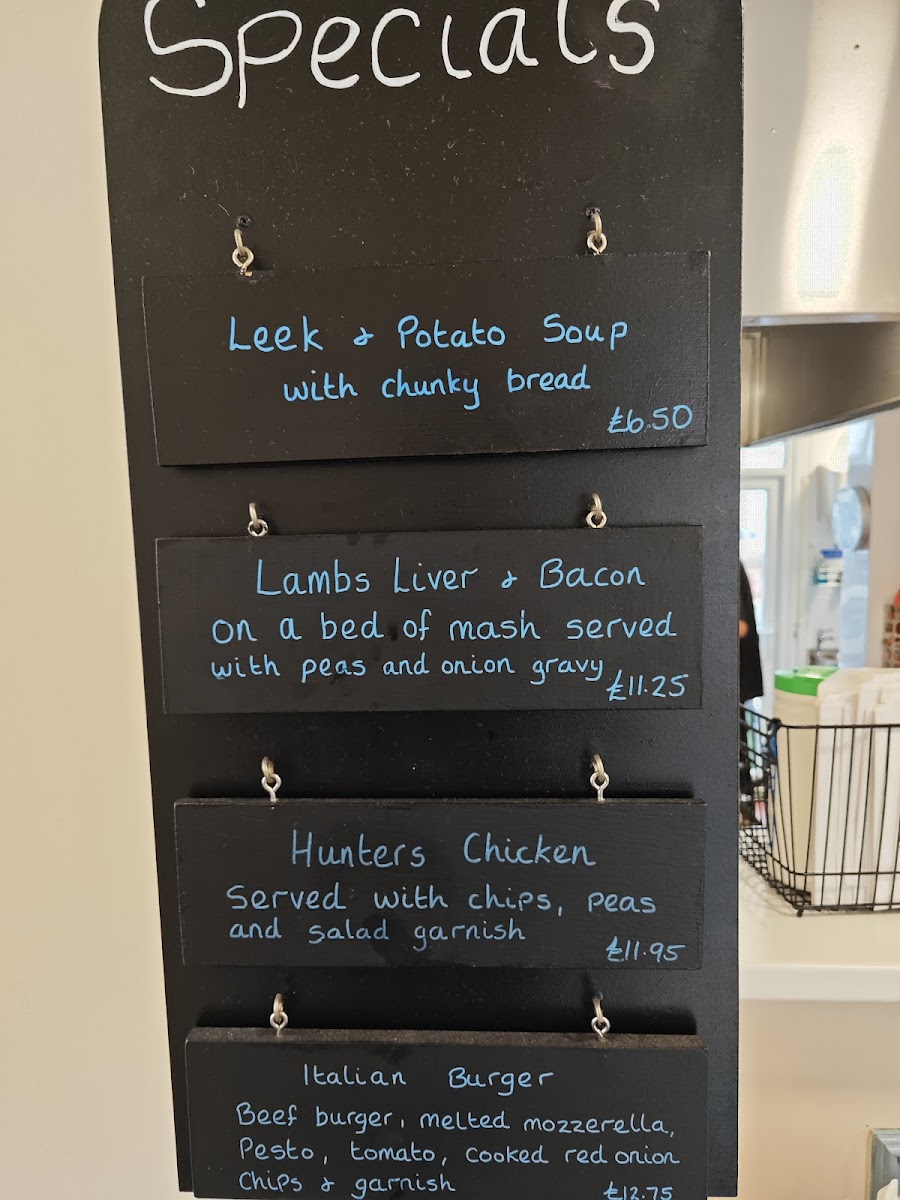 Specials
Leek & Potato Soup
with chunky bread
£6.50
Lambs Liver & Bacon
on a bed of mash served
with peas and onion gravy
£11.25
Hunters Chicken
Served with chips, peas
and salad garnish
£11.95
Italian Burger
Beef burger, melted mozzerella,
Pesto, tomato, cooked red onion
Chips & garnish
£12.75